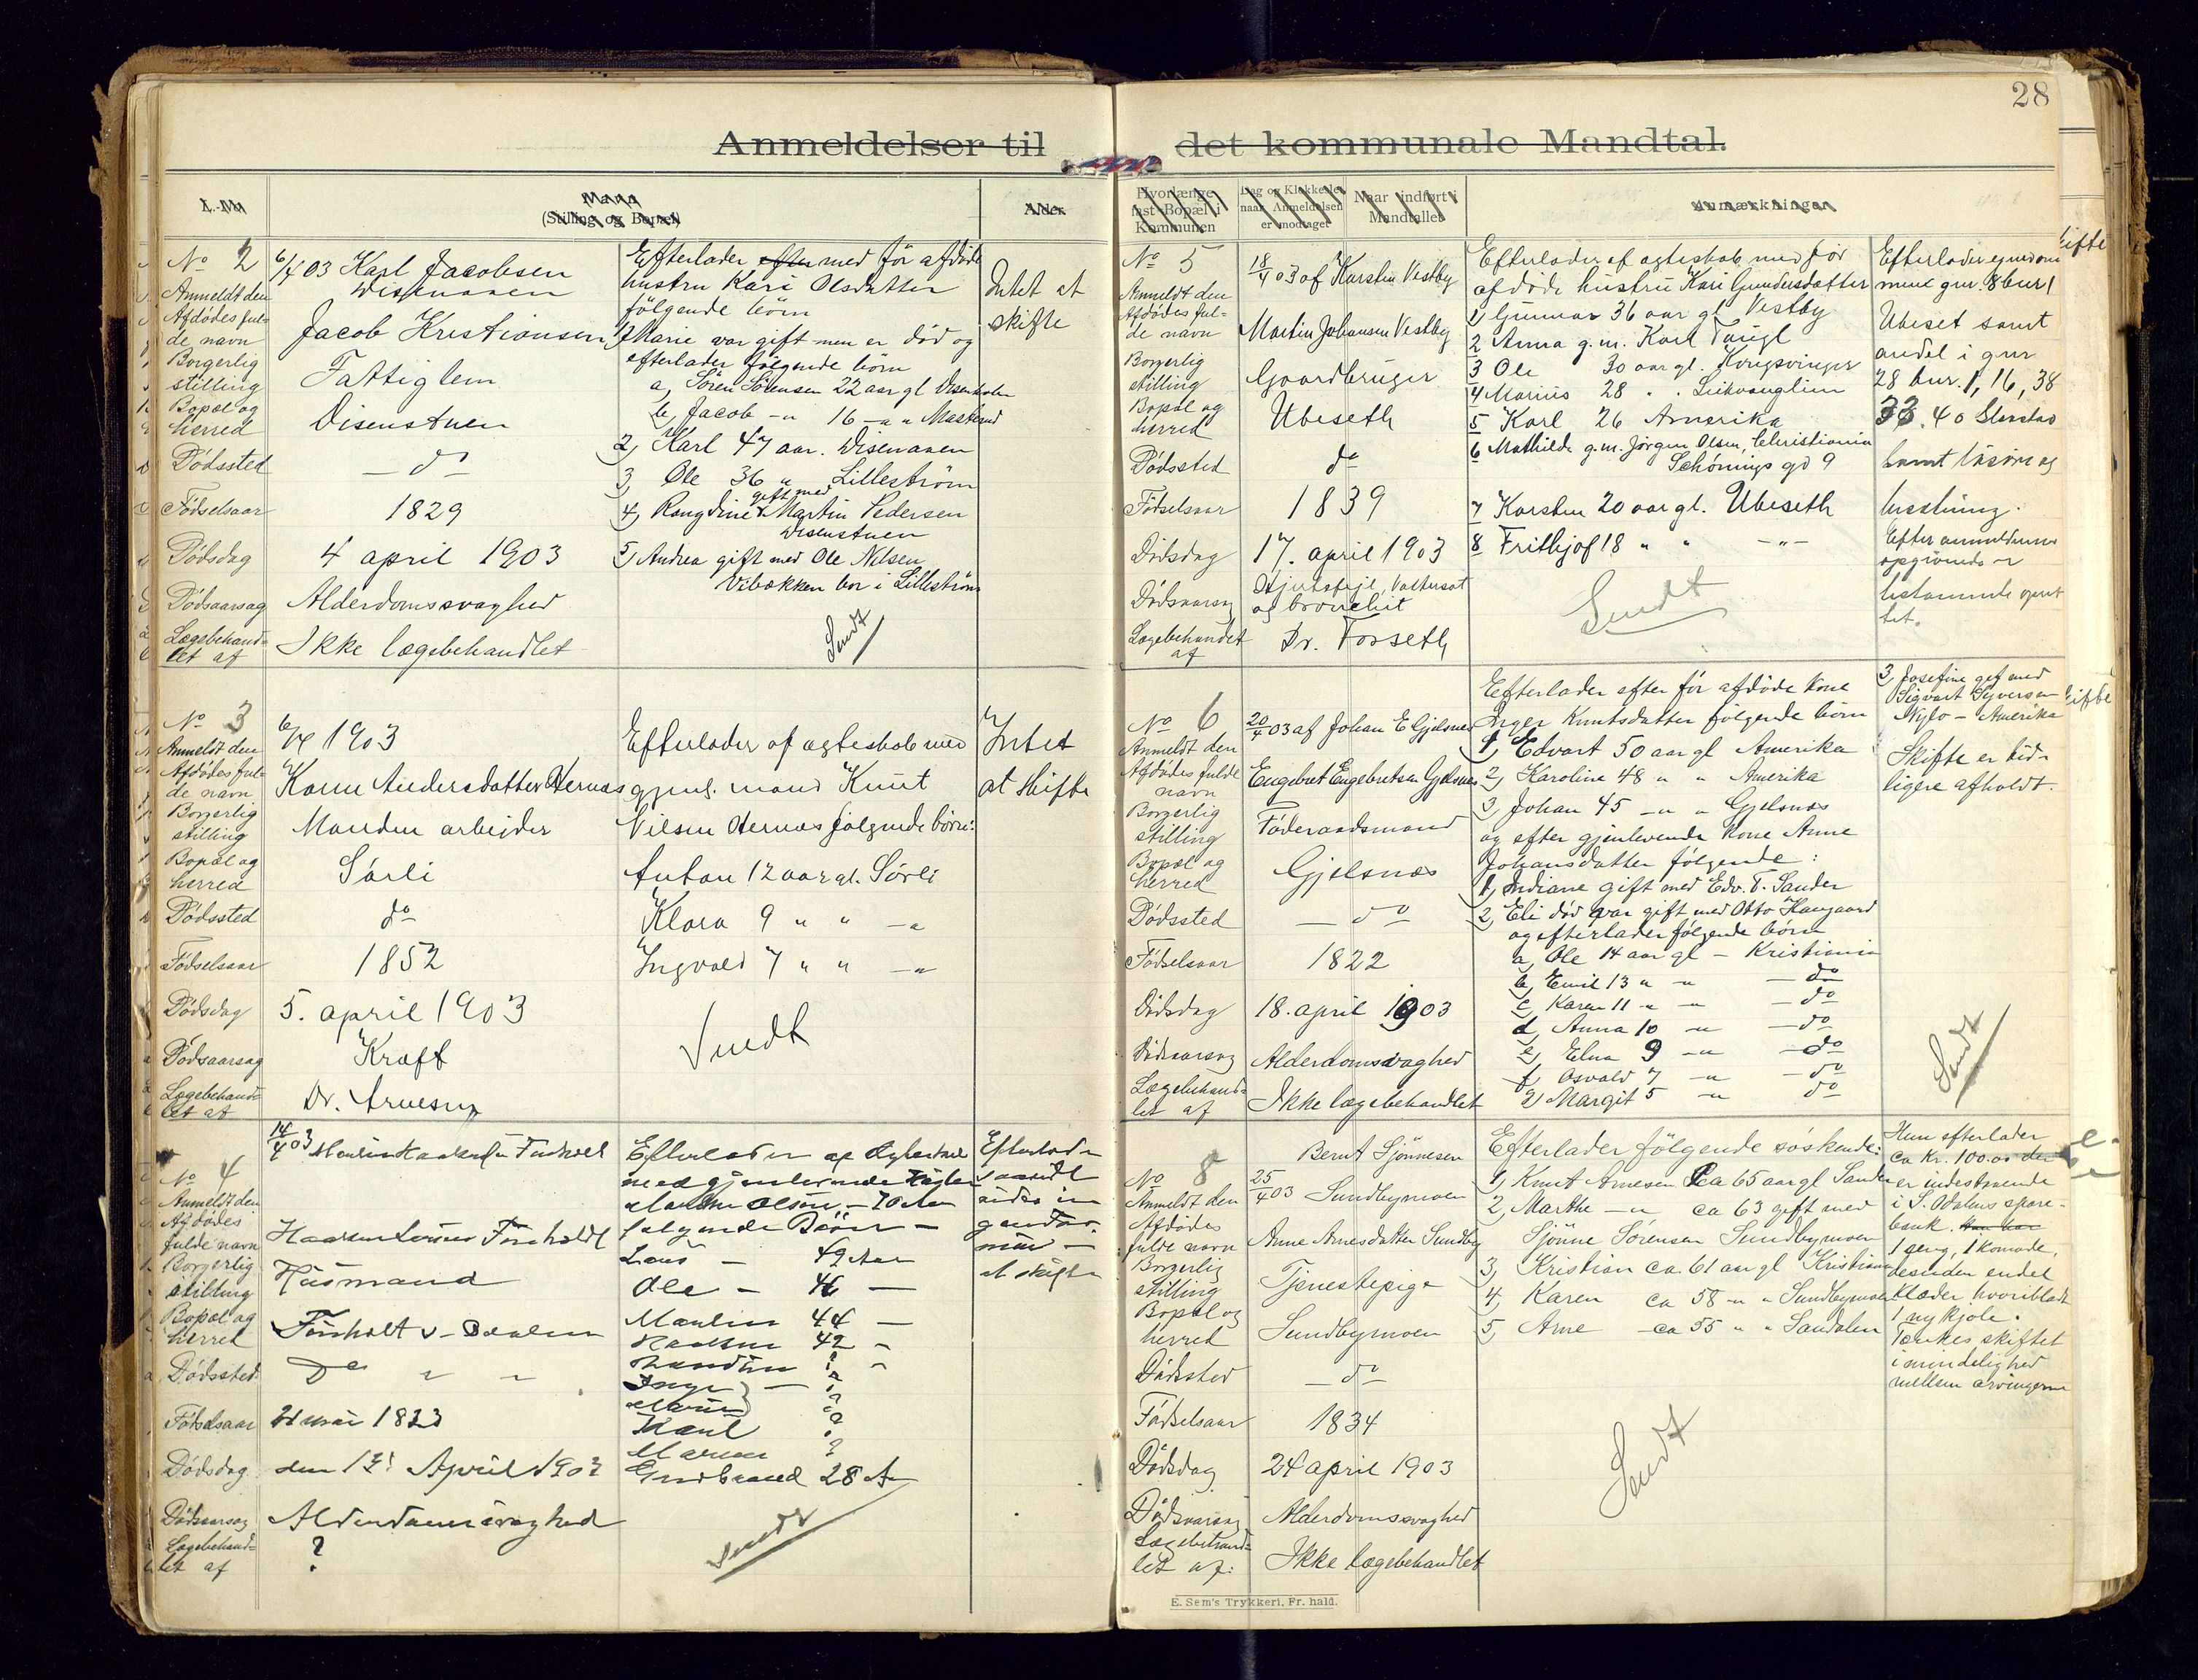 28
Anmeldelser til det kommunale Mandtal.
L.-No
Mand
(Stilling og Bopæl)
Alder.
Hvorlænge
fast Bopæl i
Kommunen
Dag og Klokkeslet
naar Anmeldelsen
er modtaget
Naar indført i
Mandtallet
Anmærkninger
No 2
6/4 03 Karl Jacobsen
Disenaaen
Anmeldt den
Afdødes ful-
de navn
Jacob Kristiansen
Borgerlig
stilling
Fattiglem
Bopæl og
herred
Disenstuen
Dødssted
— do
Fødselsaar
1829
Dødsdag
4 april 1903
Dødsaarsag
Alderdomssvaghed
Lægebehand-
let af
Ikke lægebehandlet
Efterlader efter med før afdøde
hustru Kari Olsdatter
følgende børn
1, Marie var gift men er død og
efterlader følgende børn
a, Søren Sørensen 22 aar gl
b, Jacob -"- 16 -"- "
2, Karl 47 aar. Disenaaen
3, Ole 36 " Lillestrøm
4, Rangdine gift med Martin Pedersen
Disenstuen
5, Andrea gift med Ole Nilsen
Vibakken bor i Lillestrøm
Sendt
Intet at
skifte
No 3
6/4 1903
Anmeldt den
Afdødes ful-
de navn
Karen Andersdatter Hernæs
Borgerlig
stilling
Manden arbejder
Bopæl og
herred
Sørli
Dødssted
do
Fødselsaar
1852
Dødsdag
5. april 1903
Dødsaarsag
Kræft
Lægebehand-
let af
Dr. Arnesen
Efterlader af ægteskab med
gjenl. mand Knut
Nilsen Hernæs følgende børn:
Anton 12 aar gl. Sørli
Klara 9 " " -"
Ingvald 7 " " -"
Sendt
Intet
at skifte
No 4
14/4 03
Anmeldt den
Afdødes
fulde navn
Borgerlig
stilling
Husmand
Bopæl og
herred
Dødssted
Do " "
Fødselsaar
21 mai 1823
Dødsdag
den 13' April 1903
Dødsaarsag
Alderdomssvaghed
Lægebehand-
let af
?
Efterlader af Ægteskab
med gjenlevende
Olsen – 70 Aar
følgende Børn –
Lars – 49 Aar
Ole – 46 —
44 —
Haaken 42 -
? -
Inge – ?
?
Karl ?
Maren ?
Gudbrand 28 A
Sendt
at skifte
No 5
18/4 03 af Karsten Vestby
Anmeldt den
Afdødes ful-
de navn
Martin Johansen Vestby
Borgerlig
stilling
Gaardbruger
Bopæl og
herred
Ubeseth
Dødssted
do
Fødselsaar
1839
Dødsdag
17. april 1903
Dødsaarsag
Hjertefejl, Vattersot
og bronchit
Lægebehandlet
af
Dr. Fosseth
Efterlader af ægteskab med før
afdøde hustru Kari Gundersdatter
1 Gunnar 36 aar gl Vestby
2 Anna g.m. Karl
3 Ole 30 aar gl. Kongsvinger
4 Marius 28 " "
5 Karl 26 Amerika
6 Mathilde g.m. Jørgen Olsen, Christiania
Schønings gd 9
7 Karsten 20 aar gl. Ubeseth
8 Frithjof 18 " " -"-
Sendt
Efterlader ejendom
men gnr. 8 bnr 1
Ubeset samt
andel i gnr
28 bnr. 1, 16, 38
33. 40
samt løsøre og
besætning.
Efter anmelderens
opgivende er
testamente opret
tet.
No 6
20/4 03 af Johan E Gjelsnæs
Anmeldt den
Afdødes fulde
navn
Engebret Engebretsen Gjelsnæs
Borgerlig
stilling
Føderaadsmand
Bopæl og
herred
Gjelsnæs
Dødssted
— do
Fødselsaar
1822
Dødsdag
18. april 1903
Dødsaarsag
Alderdomssvaghed
Lægebehand-
let af
Ikke lægebehandlet
Efterlader efter før afdøde kone
Inger Knutsdatter følgende børn
1, Edvart 50 aar gl Amerika
2, Karoline 48 " " Amerika
3, Johan 45 -" " Gjelsnæs
og efter gjenlevende kone Anne
Johansdatter følgende:
1, Indiane gift med Edv. T. Sander
2, Eli død var gift med Otto Haugaard
og efterlader følgende børn
a, Ole 14 aar gl – Kristiania
b, Emil 13 " " — do
c, Karen 11 -" " — do
d, Anna 10 -" — do
e, Elna 9 -" — do
f, Osvald 7 -" — do
g, Margit 5 -" do
3, Josefine gift med
Sigvart Syversen
Nylo – Amerika
Skifte er tid-
ligere afholdt.
Sendt
No 8
25/4 03
Bernt Sjønnesen
Sundbymoen
Anmeldt den
Afdødes
fulde navn
Anne Arnesdatter Sundby
Borgerlig
stilling
Tjenestepige
Bopæl og
herred
Sundbymoen
Dødssted
— do
Fødselsaar
1834
Dødsdag
24 april 1903
Dødsaarsag
Alderdomssvaghed
Lægebehand-
let af:
Ikke lægebehandlet
Efterlader følgende søskende:
1, Knut Arnesen ca 65 aar gl Sander
2, Marthe -" ca 63 gift med
Sjønne Sørensen Sundbymoen
3, Kristian ca. 61 aar gl Kristiania
4, Karen ca 58 -" " Sundbymoen
5, Arne ca 55 " " Sandalen
Hun efterlader
ca Kr. 100.00 der
er indestaaende
i S. Odalens spare-
bank. Hun har
1 seng, 1 komode,
desuden endel
klæder hvoriblandt
1 ny kjole.
Tænkes skiftet
i mindelighed
mellem arvingerne
Sendt
E. Sem's Trykkeri, Fr. hald.